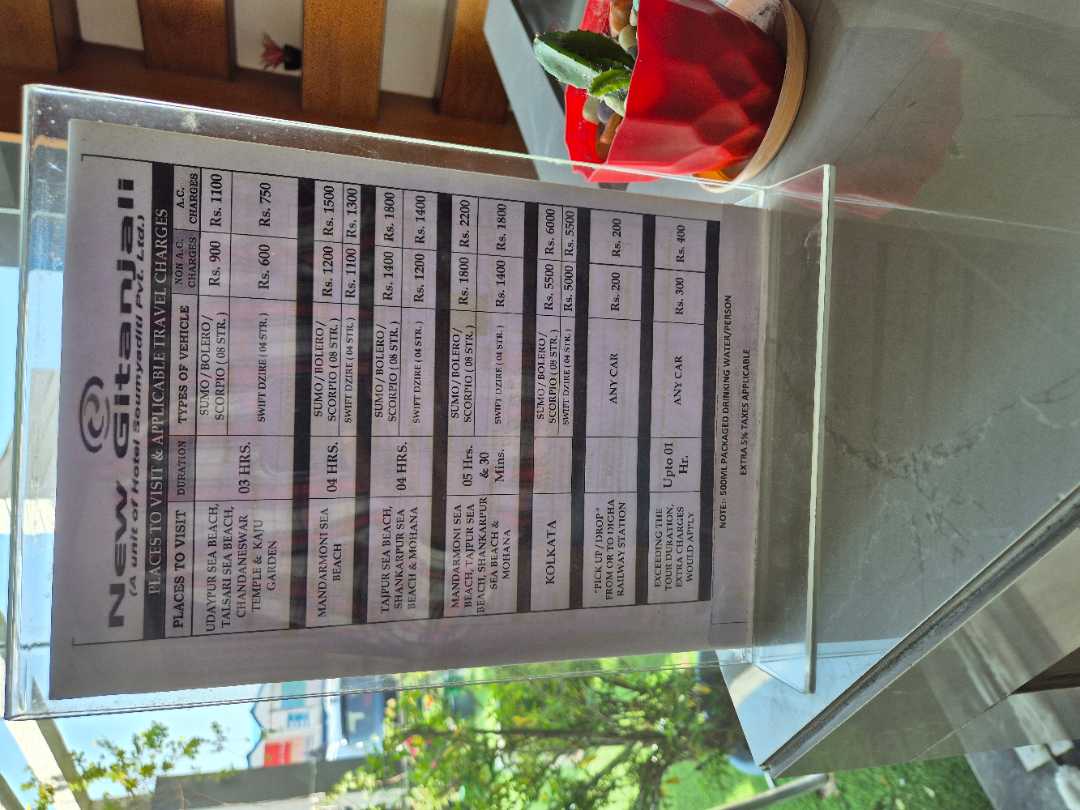 New Gitanjali
(A unit of Hotel Soumyadid Pvt. Ltd.)
PLACES TO VISIT & APPLICABLE TRAVEL CHARGES
PLACES TO VISIT DURATION TYPES OF VEHICLE NON A.C. CHARGES A.C. CHARGES
UDAYPUR SEA BEACH,
TALSARI SEA BEACH,
CHANDANESWAR
TEMPLE & KAJU
GARDEN
03 HRS.
SUMO / BOLERO/
SCORPIO ( 08 STR.)
Rs. 900 Rs. 1100
SWIFT DZIRE ( 04 STR.) Rs. 600 Rs. 750
MANDARMONI SEA
BEACH
04 HRS.
SUMO / BOLERO/
SCORPIO ( 08 STR.)
Rs. 1200 Rs. 1500
SWIFT DZIRE ( 04 STR.) Rs. 1100 Rs. 1300
TAJPUR SEA BEACH,
SHANKARPUR SEA
BEACH & MOHANA
04 HRS.
SUMO / BOLERO/
SCORPIO ( 08 STR.)
Rs. 1400 Rs. 1800
SWIFT DZIRE ( 04 STR.) Rs. 1200 Rs. 1400
MANDARMONI SEA
BEACH, TAJPUR SEA
BEACH, SHANKARPUR
SEA BEACH &
MOHANA
05 Hrs.
& 30
Mins.
SUMO / BOLERO/
SCORPIO ( 08 STR.)
Rs. 1800 Rs. 2200
SWIFT DZIRE ( 04 STR.) Rs. 1400 Rs. 1800
KOLKATA
SUMO / BOLERO/
SCORPIO ( 08 STR.)
Rs. 5500 Rs. 6000
SWIFT DZIRE ( 04 STR.) Rs. 5000 Rs. 5500
"PICK UP / DROP"
FROM OR TO DIGHA
RAILWAY STATION
ANY CAR Rs. 200 Rs. 200
EXCEEDING THE
TOUR DURATION,
EXTRA CHARGES
WOULD APPLY
Upto 01
Hr.
ANY CAR Rs. 300 Rs. 400
NOTE:- 500ML PACKAGED DRINKING WATER/PERSON
EXTRA 5% TAXES APPLICABLE